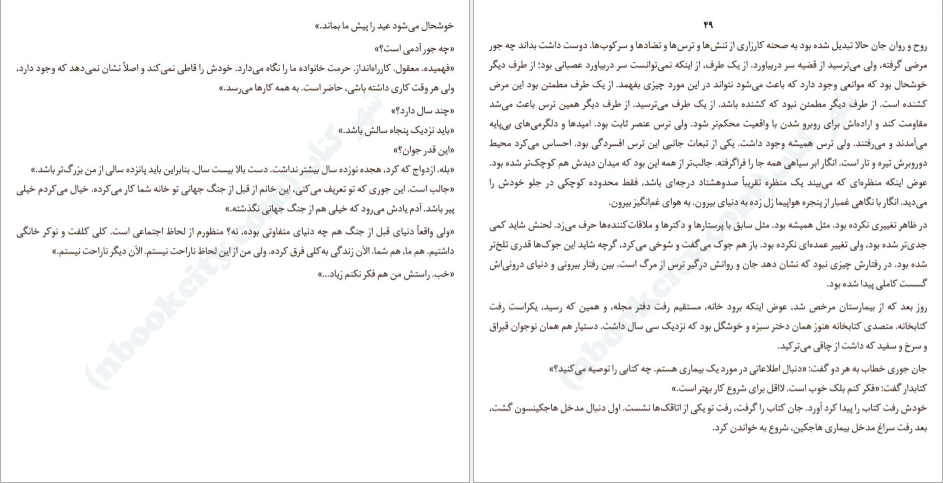 ۴۹
روح و روان جان حالا تبدیل شده بود به صحنه کارزاری از تنش‌ها و ترس‌ها و تضادها و سرکوب‌ها. دوست داشت بداند چه جور
مرضی گرفته، ولی می‌ترسید از قضیه سر دربیاورد. از یک طرف، از اینکه نمی‌توانست سر دربیاورد عصبانی بود؛ از طرف دیگر
خوشحال بود که موانعی وجود دارد که باعث می‌شود نتواند در این مورد چیزی بفهمد. از یک طرف مطمئن بود این مرض
کشنده است. از طرف دیگر مطمئن نبود که کشنده باشد. از یک طرف می‌ترسید. از طرف دیگر همین ترس باعث می‌شد
مقاومت کند و اراده‌اش برای روبرو شدن با واقعیت محکم‌تر شود. ولی ترس عنصر ثابت بود. امیدها و دلگرمی‌های بی‌پایه
می‌آمدند و می‌رفتند. ولی ترس همیشه وجود داشت. یکی از تبعات جانبی این ترس افسردگی بود. احساس می‌کرد محیط
دوروبرش تیره و تار است. انگار ابر سیاهی همه جا را فراگرفته. جالب‌تر از همه این بود که میدان دیدش هم کوچک‌تر شده بود.
عوض اینکه منظره‌ای که می‌بیند یک منظره تقریباً صدوهشتاد درجه‌ای باشد، فقط محدوده کوچکی در جلو خودش را
می‌دید. انگار با نگاهی غمبار از پنجره هواپیما زل زده به دنیای بیرون. به هوای غم‌انگیز بیرون.
در ظاهر تغییری نکرده بود. مثل همیشه بود. مثل سابق با پرستارها و دکترها و ملاقات‌کننده‌ها حرف می‌زد. لحنش شاید کمی
جدی‌تر شده بود، ولی تغییر عمده‌ای نکرده بود. باز هم جوک می‌گفت و شوخی می‌کرد، گرچه شاید این جوک‌ها قدری تلخ‌تر
شده بود. در رفتارش چیزی نبود که نشان دهد جان و روانش درگیر ترس از مرگ است. بین رفتار بیرونی و دنیای درونی‌اش
گسست کاملی پیدا شده بود.
روز بعد که از بیمارستان مرخص شد، عوض اینکه برود خانه، مستقیم رفت دفتر مجله، و همین که رسید، یکراست رفت
کتابخانه. متصدی کتابخانه هنوز همان دختر سبزه و خوشگل بود که نزدیک سی سال داشت. دستیار هم همان نوجوان قبراق
و سرخ و سفید که داشت از چاقی می‌ترکید.
جان جوری خطاب به هر دو گفت: «دنبال اطلاعاتی در مورد یک بیماری هستم. چه کتابی را توصیه می‌کنید؟»
کتابدار گفت: «فکر کنم بلک خوب است. لااقل برای شروع کار بهتر است.»
خودش رفت کتاب را پیدا کرد آورد. جان کتاب را گرفت، رفت تو یکی از اتاقک‌ها نشست. اول دنبال مدخل هاجکینسون گشت،
بعد رفت سراغ مدخل بیماری هاجکین، شروع به خواندن کرد.
خوشحال می‌شود عید را پیش ما بماند.»
«چه جور آدمی است؟»
«فهمیده. معقول. کارراه‌انداز. حرمت خانواده ما را نگاه می‌دارد. خودش را قاطی نمی‌کند و اصلاً نشان نمی‌دهد که وجود دارد،
ولی هر وقت کاری داشته باشی، حاضر است. به همه کارها می‌رسد.»
«چند سال دارد؟»
«باید نزدیک پنجاه سالش باشد.»
«این قدر جوان؟»
«بله. ازدواج که کرد، هجده نوزده سال بیشتر نداشت. دست بالا بیست سال. بنابراین باید پانزده سالی از من بزرگ‌تر باشد.»
«جالب است. این جوری که تو تعریف می‌کنی، این خانم از قبل از جنگ جهانی تو خانه شما کار می‌کرده. خیال می‌کردم خیلی
پیر باشد. آدم یادش می‌رود که خیلی هم از جنگ جهانی نگذشته.»
«ولی واقعاً دنیای قبل از جنگ هم چه دنیای متفاوتی بوده، نه؟ منظورم از لحاظ اجتماعی است. کلی کلفت و نوکر خانگی
داشتیم. هم ما، هم شما. الآن زندگی به‌کلی فرق کرده. ولی من از این لحاظ ناراحت نیستم. الآن دیگر ناراحت نیستم.»
«خب. راستش من هم فکر نکنم زیاد...»